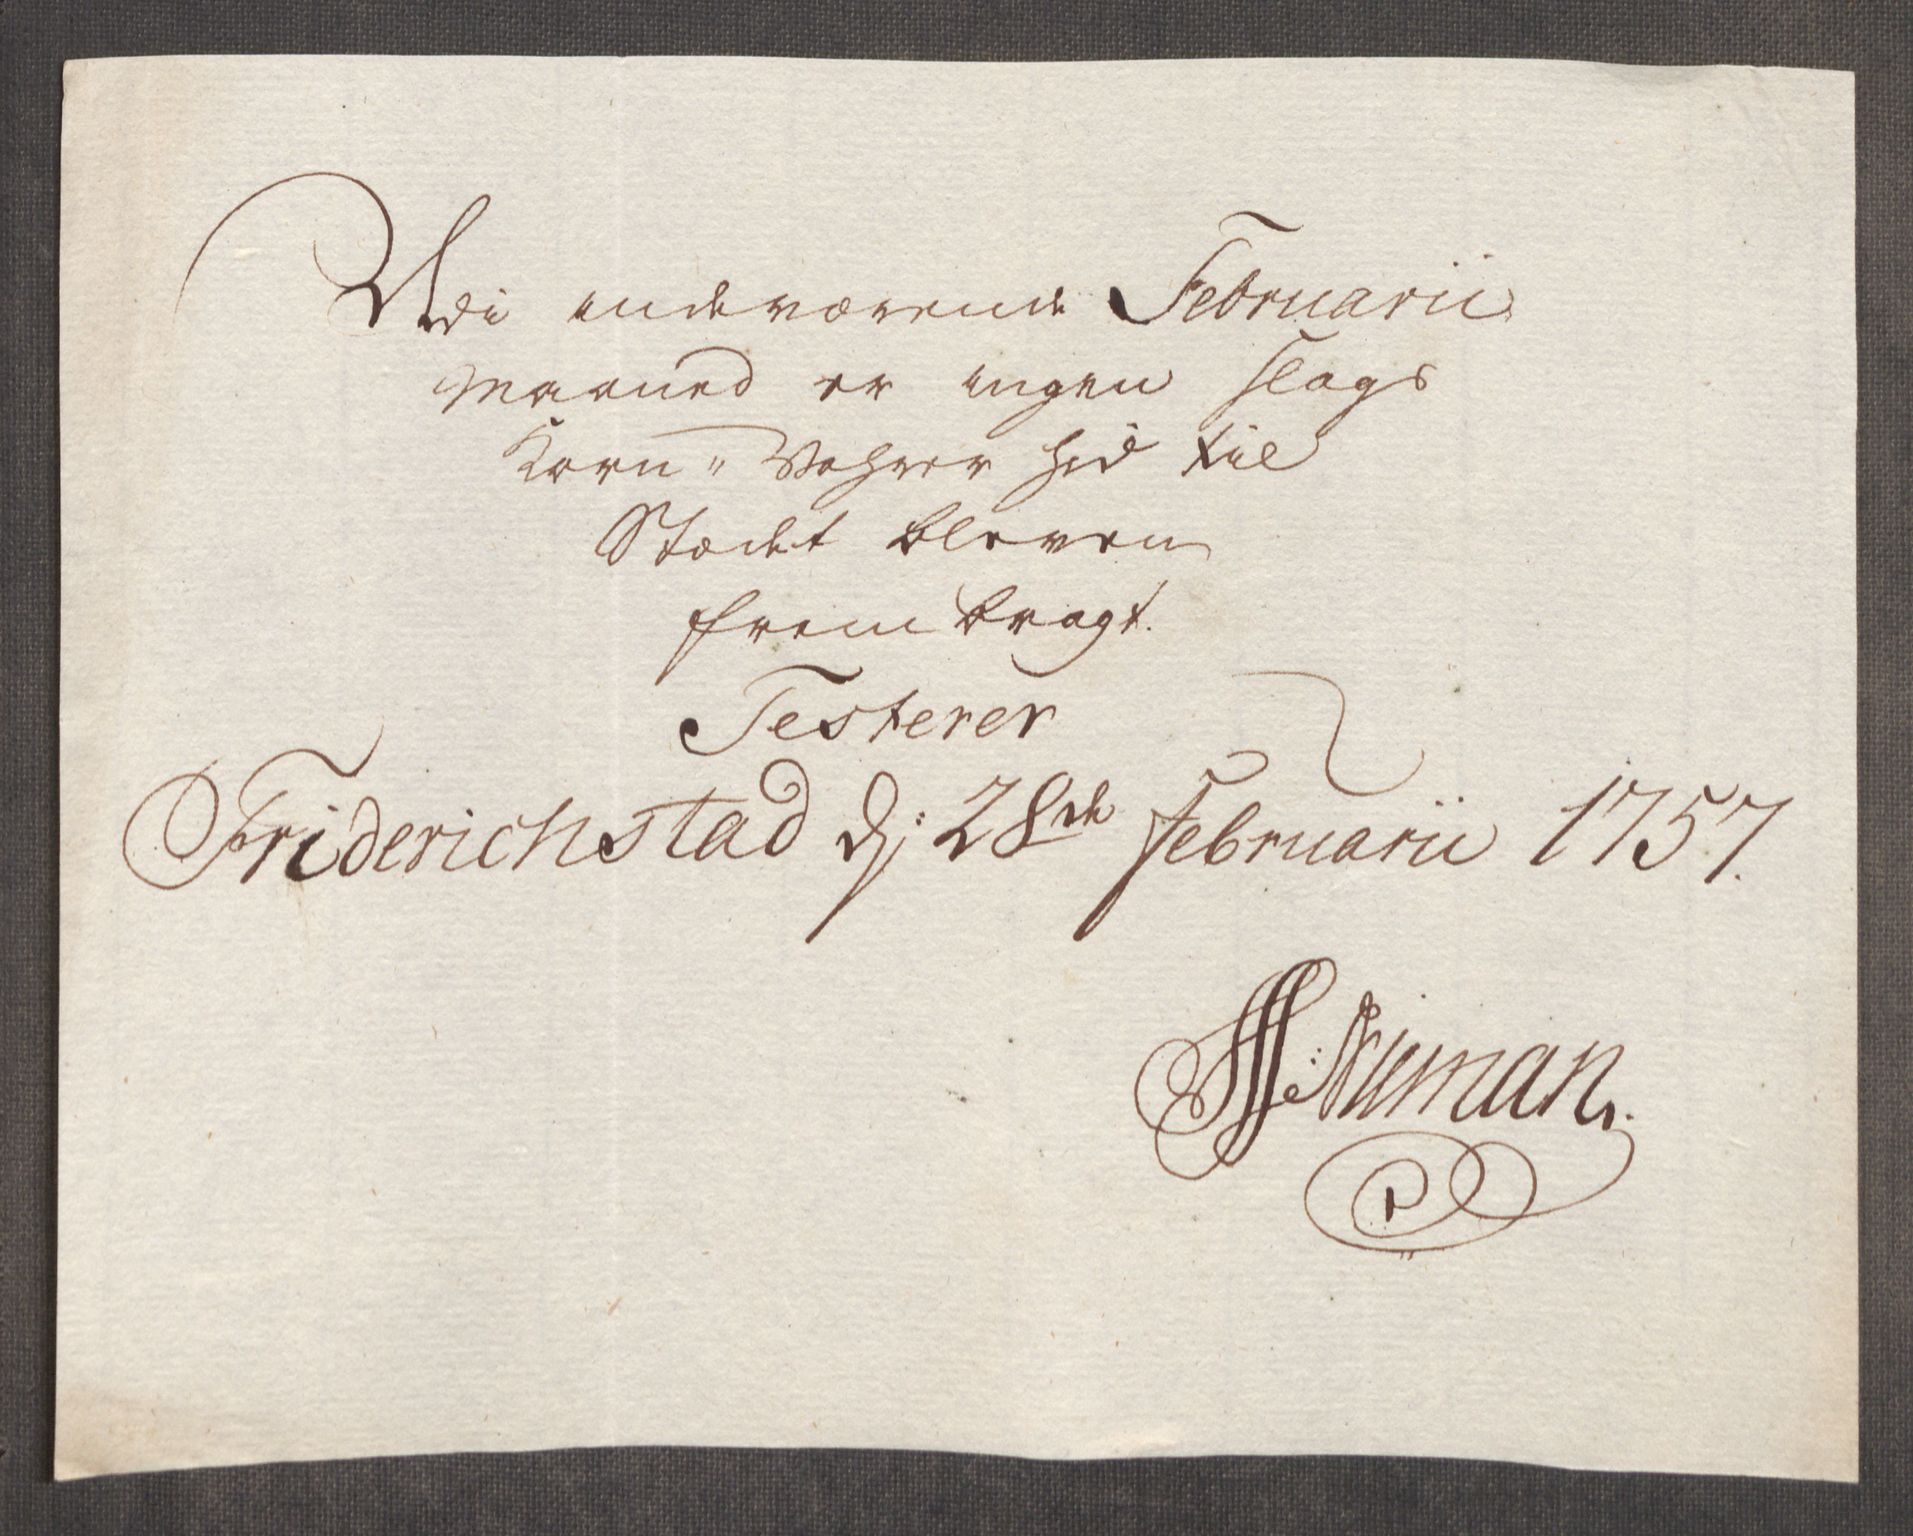 Udi indeværende Februarii
Maaned er ingen slags
Korn-Vahrer hid til
Stædet bleven
frembragt.
Testerer
Friderichstad d: 28de Februarii 1757.
Niman.